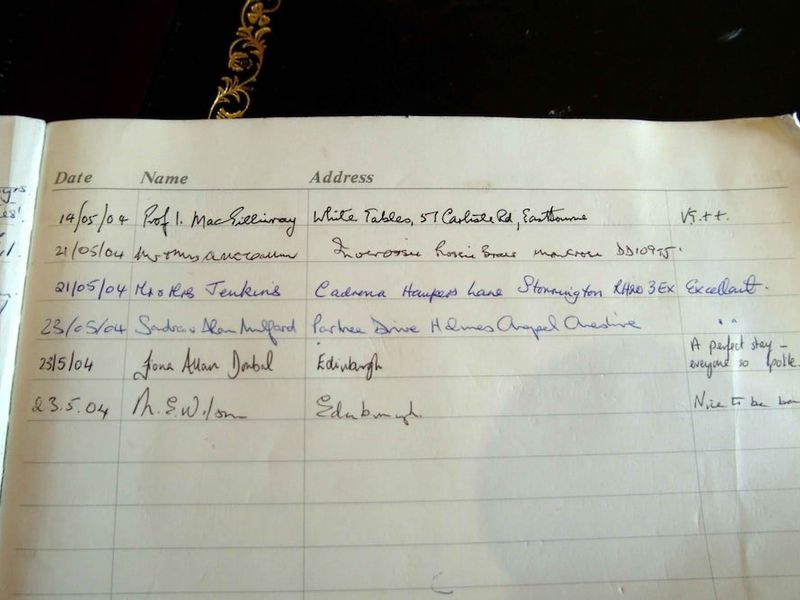 Date Name Address
19/05/04 Prof I. MacGillivray White Gables, 57 Carlisle Rd, Eastbourne V.G.++.
21/05/04 Mr & Mrs Inverossie Rossie Braes Montrose DD10
21/05/04 Mr & Mrs Jenkins Cadrona Hampers Lane Storrington RH20 3EX Excellent.
23/05/04 Sandra & Alan Mulfard Drive Holmes Chapel Cheshire " "
A perfect stay –
23/5/04 Fiona Allan Edinburgh everyone so polite.
23.5.04 M. E. Wilson Edinburgh. Nice to be